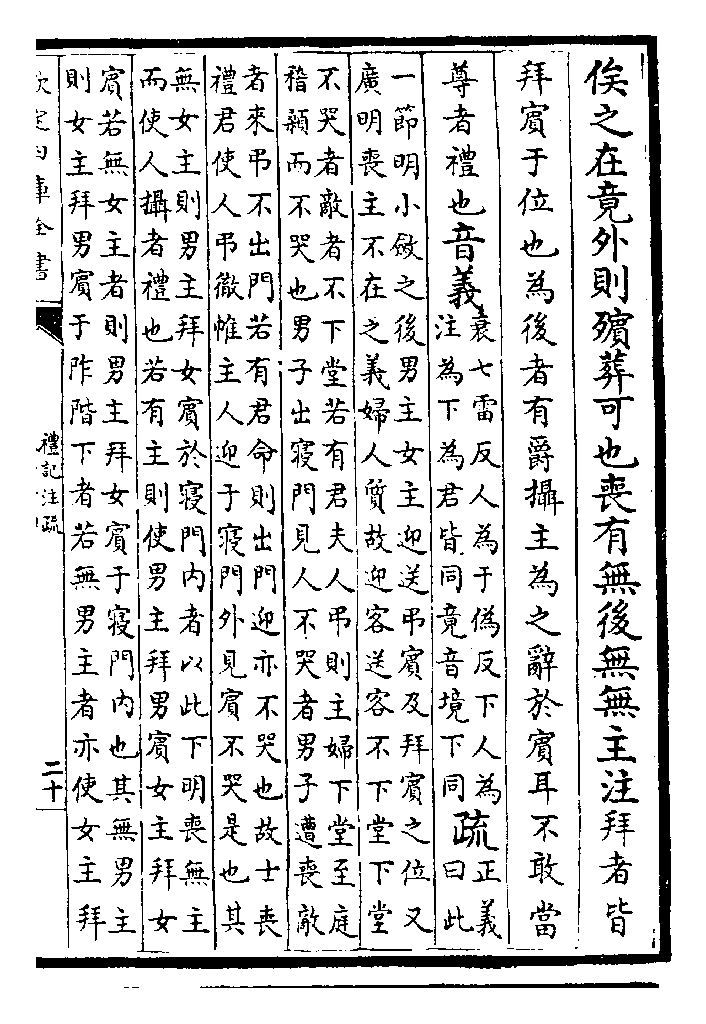 俟之在竟外則殯葬可也喪有無後無無主注拜者皆
拜賓于位也為後者有爵攝主為之辭於賓耳不敢當
尊者禮也音義衰七雷反人為于偽反下人為
注為下為君皆同竟音境下同疏正義
曰此
一節明小斂之後男主女主迎送弔賓及拜賓之位又
廣明喪主不在之義婦人質故迎客送客不下堂下堂
不哭者敵者不下堂若有君夫人弔則主婦下堂至庭
稽顙而不哭也男子出寢門見人不哭者男子遭喪敵
者來弔不出門若有君命則出門迎亦不哭也故士喪
禮君使人弔徹帷主人迎于寢門外見賓不哭是也其
無女主則男主拜女賓於寢門內者以此下明喪無主
而使人攝者禮也若有主則使男主拜男賓女主拜女
賓若無女主者則男主拜女賓于寢門內也其無男主
則女主拜男賓于阼階下者若無男主者亦使女主拜
欽定四庫全書
禮記注疏
二十